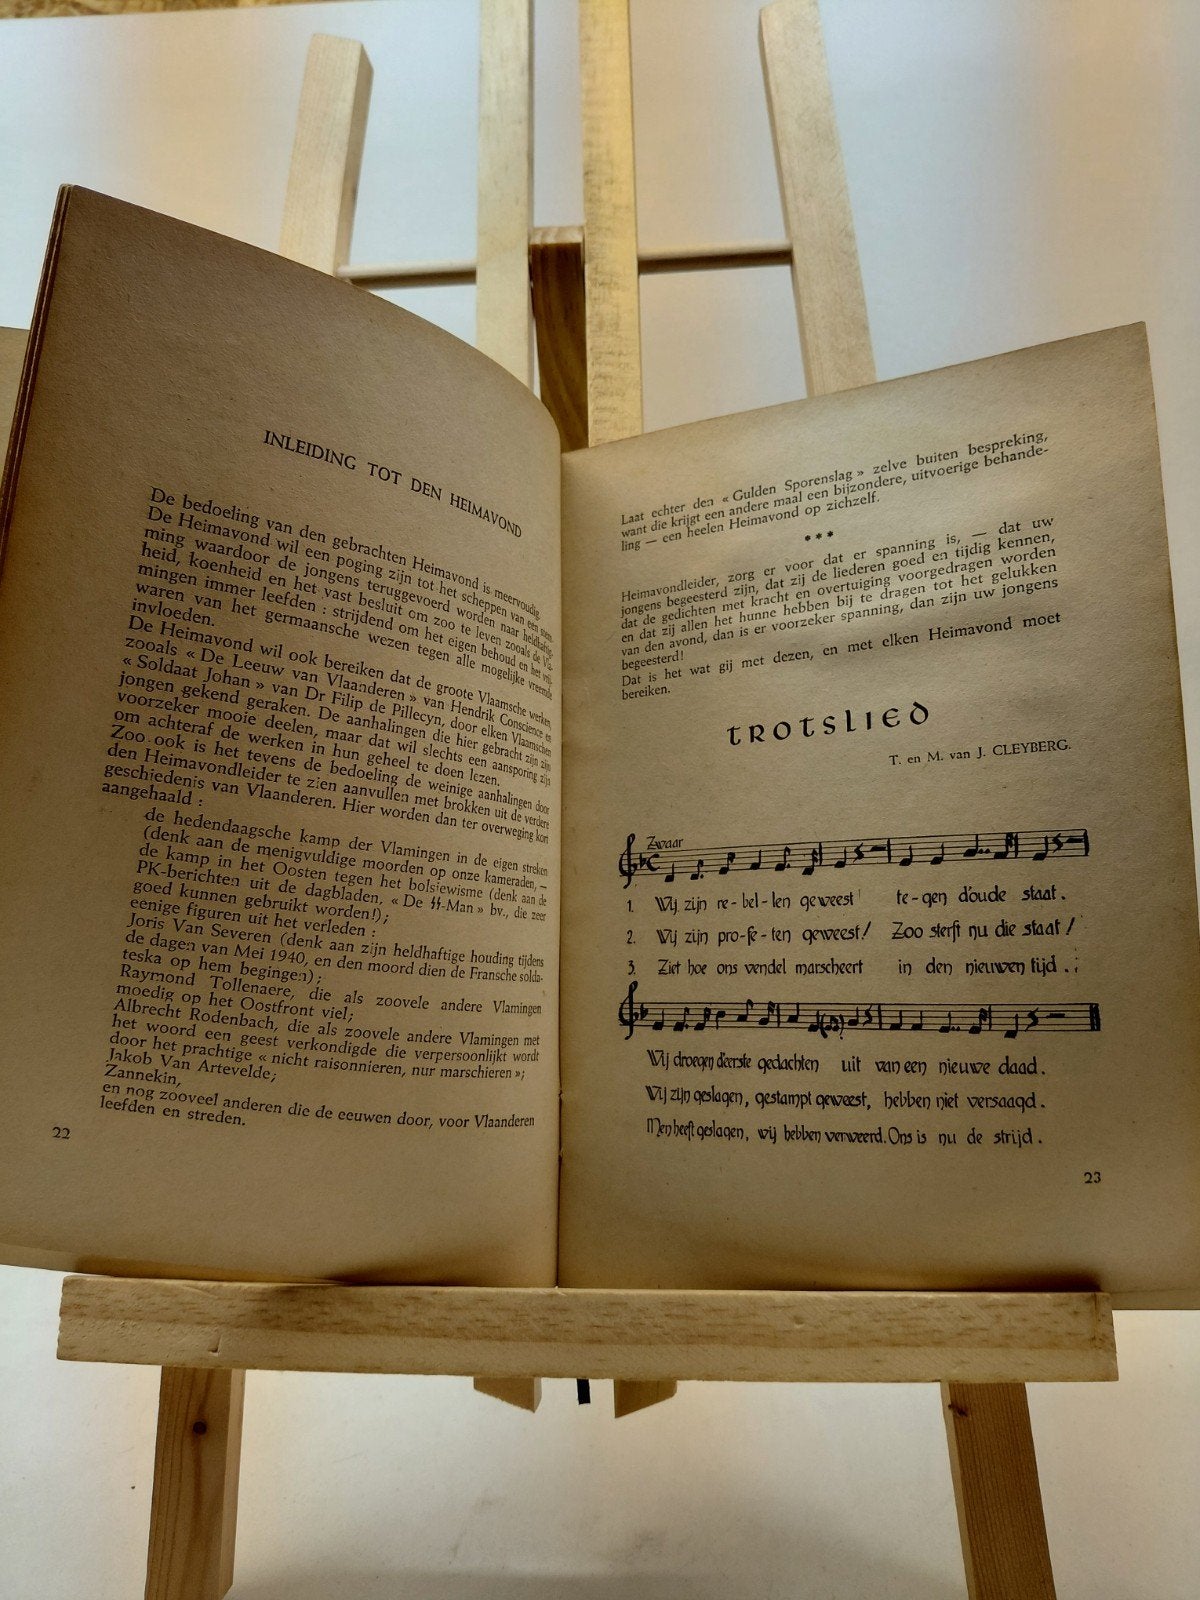 INLEIDING TOT DEN HEIMAVOND
De bedoeling van den gebrachten Heimavond is meervoudig.
De Heimavond wil een poging zijn tot het scheppen van een stem-
ming waardoor de jongens teruggevoerd worden naar heldhaftig-
heid, koenheid en het vast besluit om zoo te leven zooals de Vla-
mingen immer leefden : strijdend om het eigen behoud en het vrij-
waren van het germaansche wezen tegen alle mogelijke vreemde
invloeden.
De Heimavond wil ook bereiken dat de groote Vlaamsche werken,
zooals « De Leeuw van Vlaanderen » van Hendrik Conscience en
« Soldaat Johan » van Dr Filip de Pillecyn, door elken Vlaamschen
jongen gekend geraken. De aanhalingen die hier gebracht zijn zijn
voorzeker mooie deelen, maar dat wil slechts een aansporing zijn
om achteraf de werken in hun geheel te doen lezen.
Zoo ook is het tevens de bedoeling de weinige aanhalingen door
den Heimavondleider te zien aanvullen met brokken uit de verdere
geschiedenis van Vlaanderen. Hier worden dan ter overweging kort
aangehaald :
de hedendaagsche kamp der Vlamingen in de eigen streken
(denk aan de menigvuldige moorden op onze kameraden, —
de kamp in het Oosten tegen het bolsjewisme (denk aan de
PK-berichten uit de dagbladen, « De ϟϟ-Man » bv., die zeer
goed kunnen gebruikt worden!) ;
eenige figuren uit het verleden :
Joris Van Severen (denk aan zijn heldhaftige houding tijdens
de dagen van Mei 1940, en den moord dien de Fransche solda-
teska op hem begingen) ;
Raymond Tollenaere, die als zoovele andere Vlamingen
moedig op het Oostfront viel;
Albrecht Rodenbach, die als zoovele andere Vlamingen met
het woord een geest verkondigde die verpersoonlijkt wordt
door het prachtige « nicht raisonnieren, nur marschieren » ;
Jakob Van Artevelde;
Zannekin,
en nog zooveel anderen die de eeuwen door, voor Vlaanderen
leefden en streden.
22
Laat echter den « Gulden Sporenslag » zelve buiten bespreking,
want die krijgt een andere maal een bijzondere, uitvoerige behande-
ling — een heelen Heimavond op zichzelf.
***
Heimavondleider, zorg er voor dat er spanning is, — dat uw
jongens begeesterd zijn, dat zij de liederen goed en tijdig kennen,
dat de gedichten met kracht en overtuiging voorgedragen worden
en dat zij allen het hunne hebben bij te dragen tot het gelukken
van den avond, dan is er voorzeker spanning, dan zijn uw jongens
begeesterd!
Dat is het wat gij met dezen, en met elken Heimavond moet
bereiken.
TROTSLIED
T. en M. van J. CLEYBERG.
Zwaar
1. Wij zijn re-bel-len geweest te-gen d'oude staat.
2. Wij zijn pro-fe-ten geweest! Zoo sterft nu die staat!
3. Ziet hoe ons vendel marscheert in den nieuwen tijd.
Wij droegen d'eerste gedachten uit van een nieuwe daad.
Wij zijn geslagen, gestampt geweest, hebben niet versaagd.
Men heeft geslagen, wij hebben verweerd. Ons is nu de strijd.
23